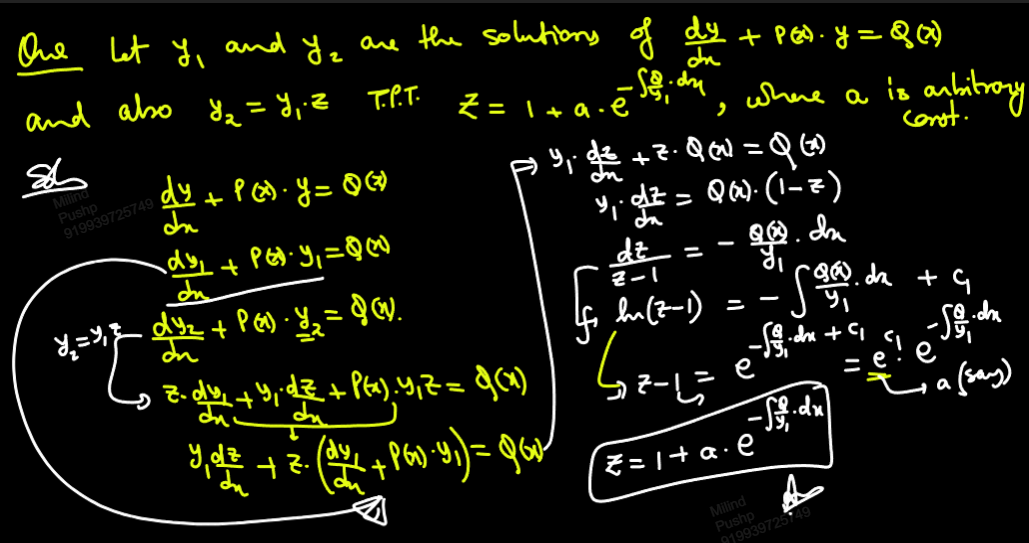 Que Let y₁ and y₂ are the solutions of dy/dx + P(x)·y = Q(x)
and also y₂ = y₁·z T.P.T. z = 1 + a·e^(-∫Q/y₁·dx), where a is arbitrary const.
Sol
dy/dx + P(x)·y = Q(x)
dy₁/dx + P(x)·y₁ = Q(x)
y₂=y₁z dy₂/dx + P(x)·y₂ = Q(x).
z·dy₁/dx + y₁·dz/dx + P(x)·y₁z = Q(x)
y₁dz/dx + z·(dy₁/dx + P(x)·y₁) = Q(x)
y₁·dz/dx + z·Q(x) = Q(x)
y₁·dz/dx = Q(x)·(1-z)
dz/(z-1) = - Q(x)/y₁·dx
ln(z-1) = -∫Q(x)/y₁·dx + c₁
z-1 = e^(-∫Q/y₁·dx + c₁) = e^c₁·e^(-∫Q/y₁·dx)
a (say)
z = 1 + a·e^(-∫Q/y₁·dx)
Milind
Pushp
919939725749
Milind
Pushp
919939725749